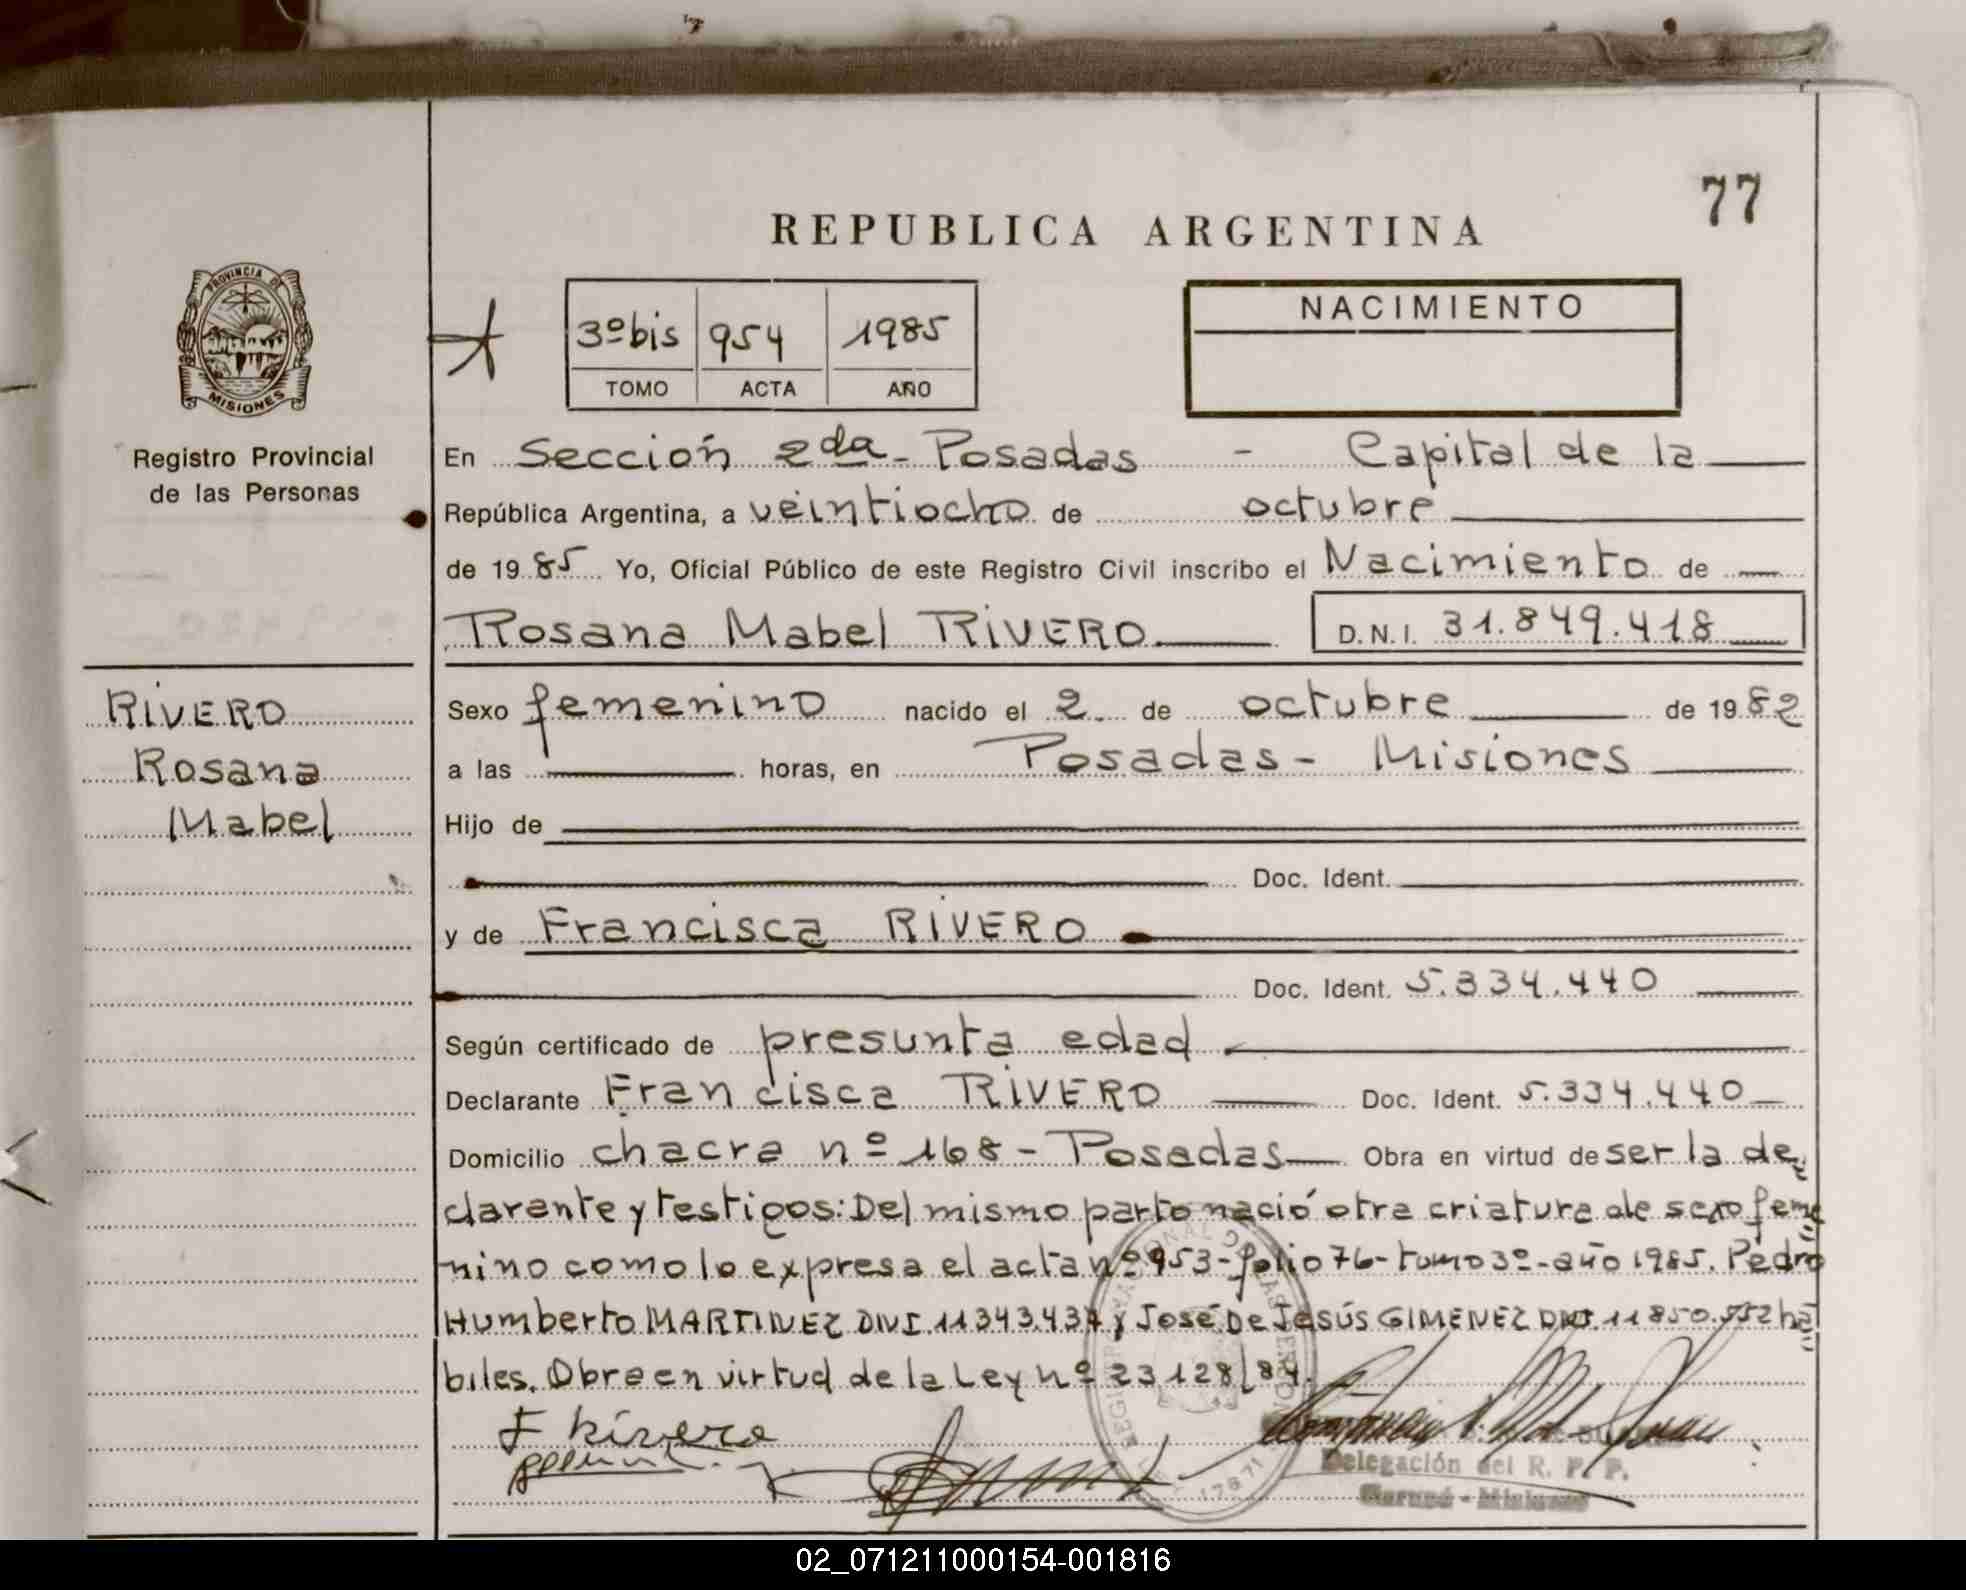 77
REPUBLICA ARGENTINA
PROVINCIA DE
MISIONES
Registro Provincial
de las Personas
3º bis 954 1985
TOMO ACTA AÑO
NACIMIENTO
En Sección 2da - Posadas - Capital de la
República Argentina, a veintiocho de octubre
de 1985 Yo, Oficial Público de este Registro Civil inscribo el Nacimiento de
Rosana Mabel RIVERO D.N.I. 31.849.418
RIVERO
Rosana
Mabel
Sexo femenino nacido el 2 de octubre de 1982
a las horas, en Posadas - Misiones
Hijo de
Doc. Ident.
y de Francisca RIVERO
Doc. Ident. 5.334.440
Según certificado de presunta edad
Declarante Francisca RIVERO Doc. Ident. 5.334.440
Domicilio chacra nº 168 - Posadas Obra en virtud de ser la de
clarante y testigos: Del mismo parto nació otra criatura de sexo feme
nino como lo expresa el acta nº 953 - folio 76 - tomo 3º - año 1985. Pedro
Humberto MARTINEZ DNI. 11.343.437 y José De Jesús GIMENEZ DNI. 11.850.552 há
biles. Obra en virtud de la Ley nº 23128/84.
F Rivero
Delegación del R. P. P.
Garupá - Misiones
02_071211000154-001816